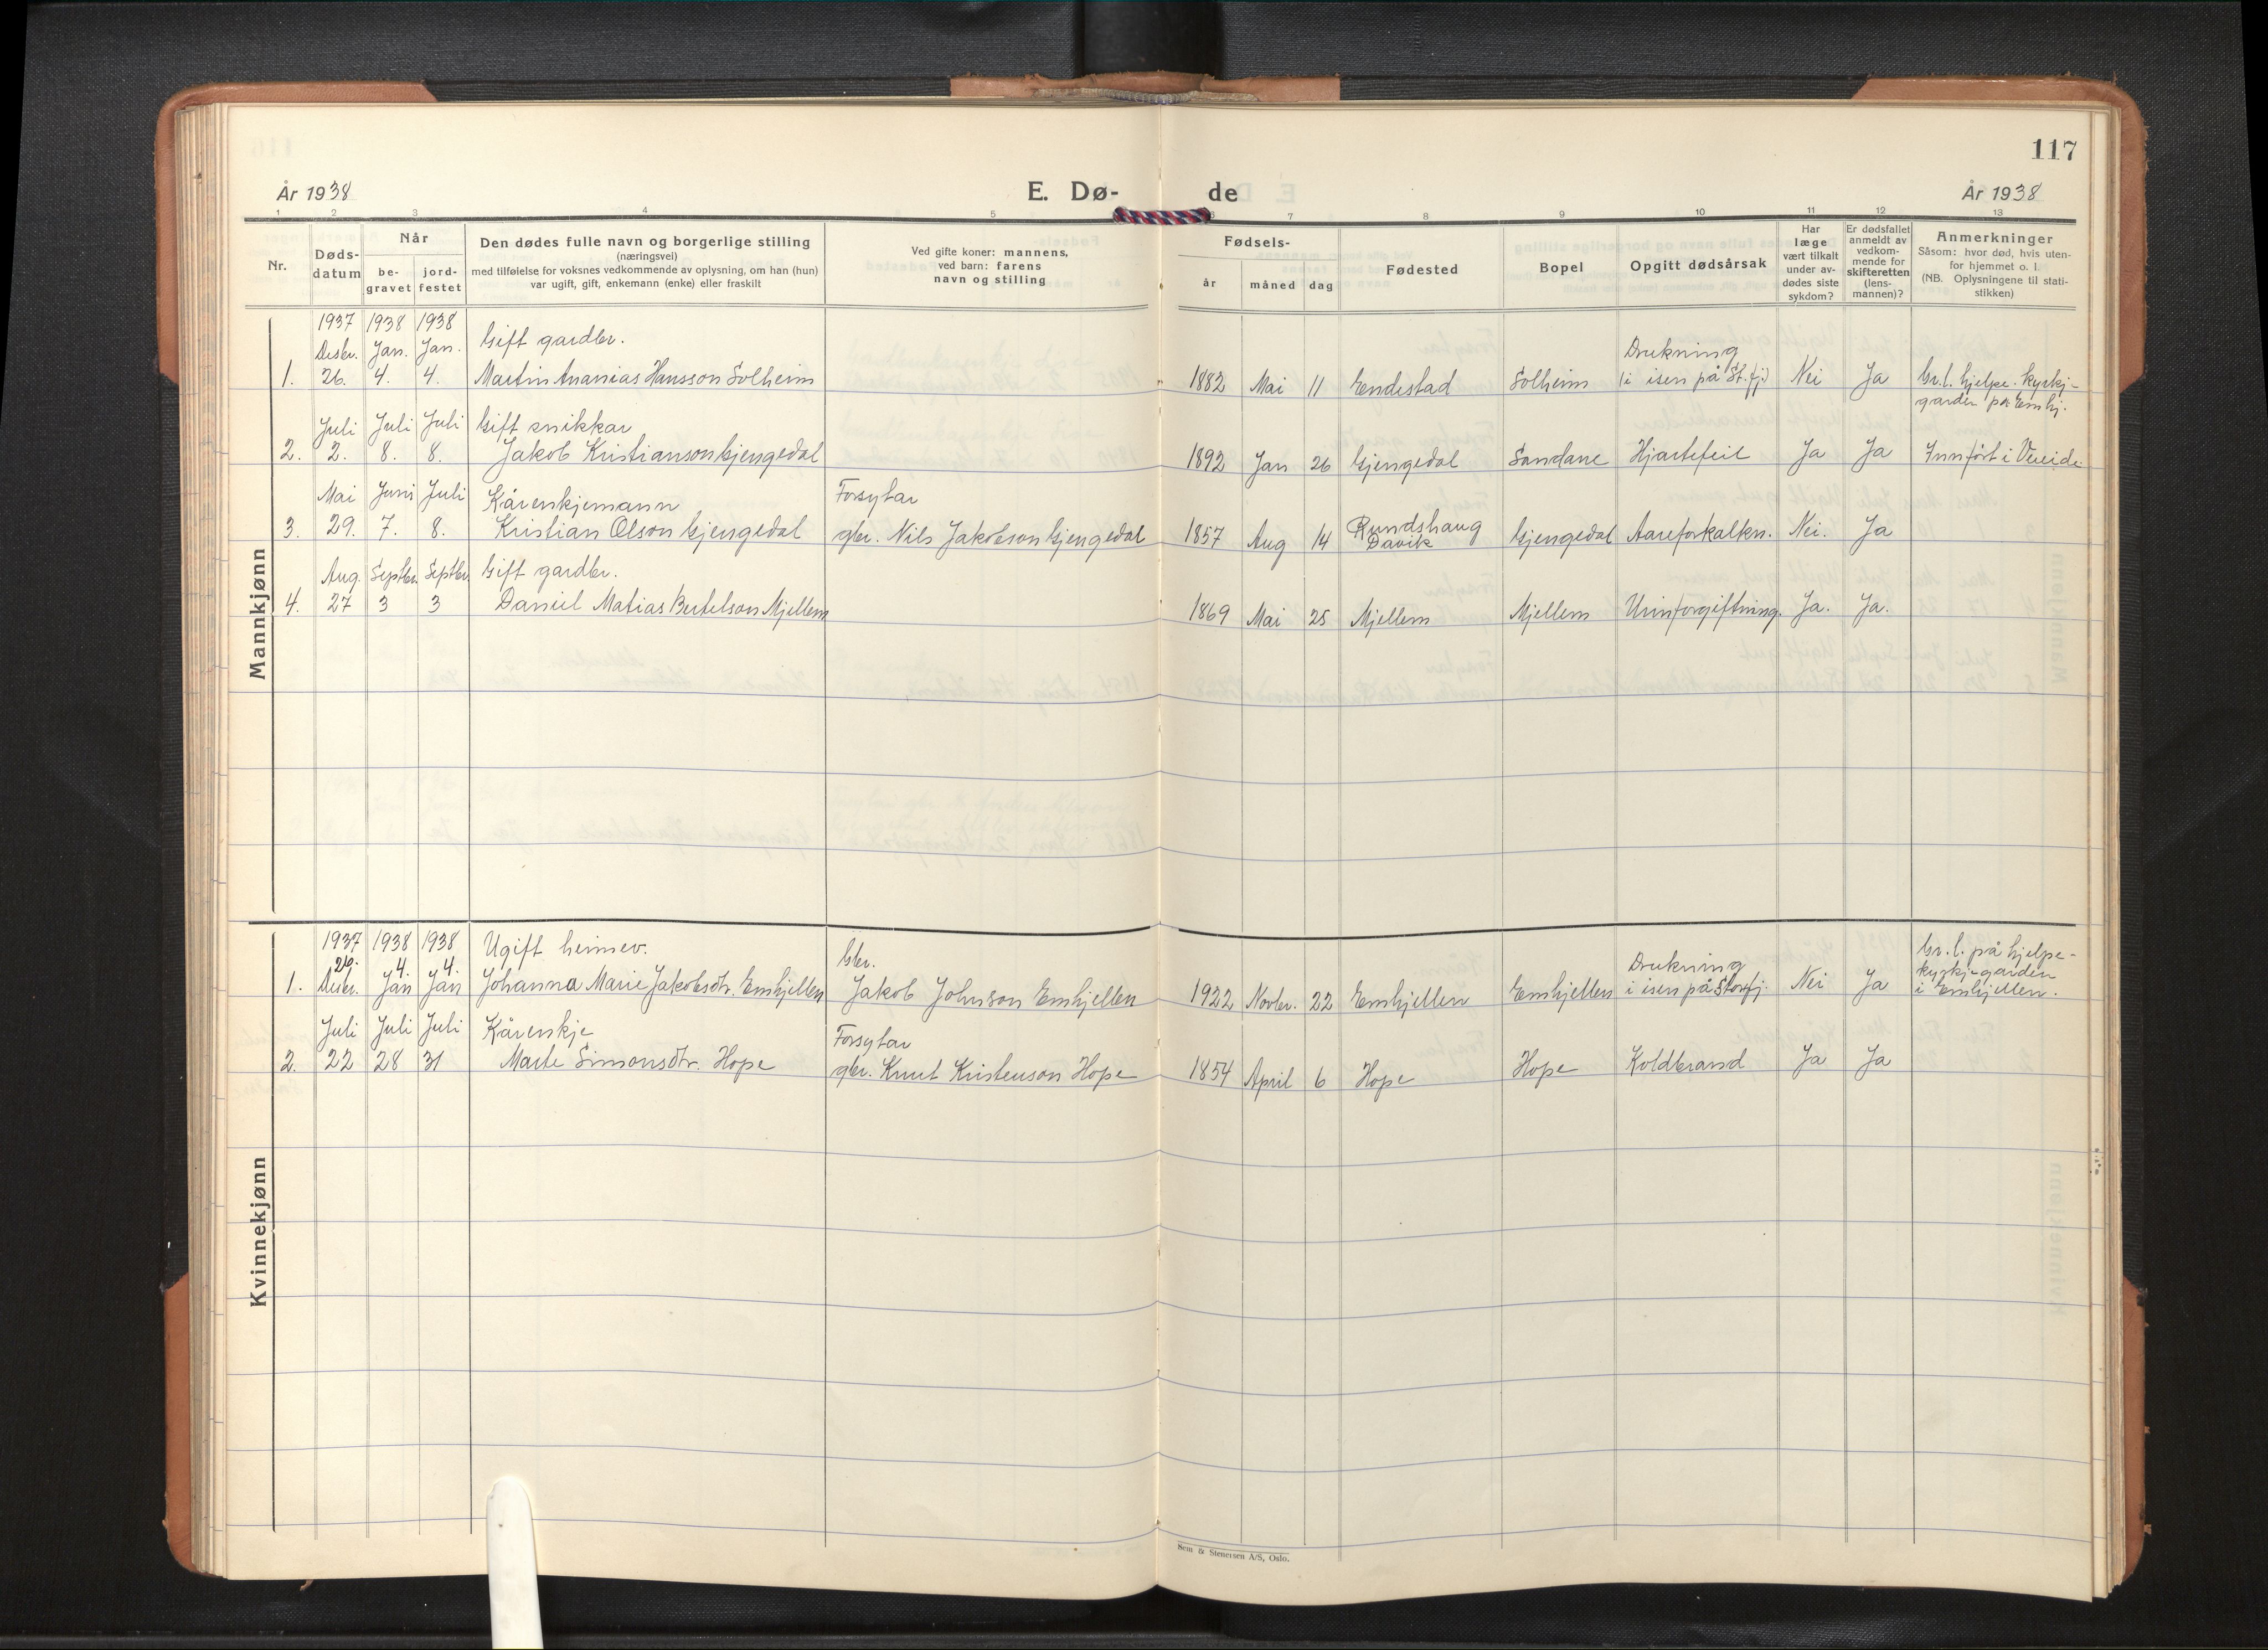 117
År 1938
E. Dø-
de
År 1938
1 2 3 4 5 6 7 8 9 10 11 12 13
Nr.
Døds-
datum
Når
be-
gravet
jord-
festet
Den dødes fulle navn og borgerlige stilling
(næringsvei)
med tilføielse for voksnes vedkommende av oplysning, om han (hun)
var ugift, gift, enkemann (enke) eller fraskilt
Ved gifte koner: mannens,
ved barn: farens
navn og stilling
Fødsels-
år måned dag
Fødested
Bopel
Opgitt dødsårsak
Har
læge
vært tilkalt
under av-
dødes siste
sykdom?
Er dødsfallet
anmeldt av
vedkom-
mende for
skifteretten
(lens-
mannen)?
Anmerkninger
Såsom: hvor død, hvis uten-
for hjemmet o. l.
(NB. Oplysningene til stati-
stikken)
Mannkjønn
1937 1938 1938
Desbr. Jan. Jan. Gift gardbr. Drukning
1. 26. 4. 4. Martin Ananias Hansson Solheim 1882 Mai 11 Endestad Solheim (i isen på St.fj.) Nei Ja Gr. l. hjelpe-kyrkj-
garden på Emhj.
Juli Juli Juli Gift snikkar
2. 2. 8. 8. Jakob Kristianson Gjengedal 1892 Jan 26 Gjengedal Sandane Hjartefeil Ja Ja Innført i Vereide
Mai Juni Juli Kårenkjemann Forsytar Rundshaug
3. 29. 7. 8. Kristian Olson Gjengedal gbr. Nils Jakobson Gjengedal 1857 Aug 14 Davik Gjengedal Aareforkalkn. Nei. Ja
Aug. Septbr. Septbr. Gift gardbr.
4. 27 3 3 Daniel Matias Bertelson Mjellem 1869 Mai 25 Mjellem Mjellem Urinforgiftning. Ja. Ja.
Kvinnekjønn
1937 1938 1938 Ugift heimev. Gbr. Drukning Gr. l. på hjelpe-
26. 4. 4. kyrkjegarden
1. Desbr. Jan Jan Johanna Marie Jakobsdtr. Emhjellen Jakob Johnson Emhjellen 1922 Novbr. 22 Emhjellen Emhjellen i isen på Storfj. Nei Ja i Emhjellen.
Juli Juli Juli Kårenkje Forsytar
2. 22 28 31 Marte Simonsdtr. Hope gbr. Knut Kristenson Hope 1854 April 6 Hope Hope Koldbrand Ja Ja
Sem & Stenersen A/S, Oslo.